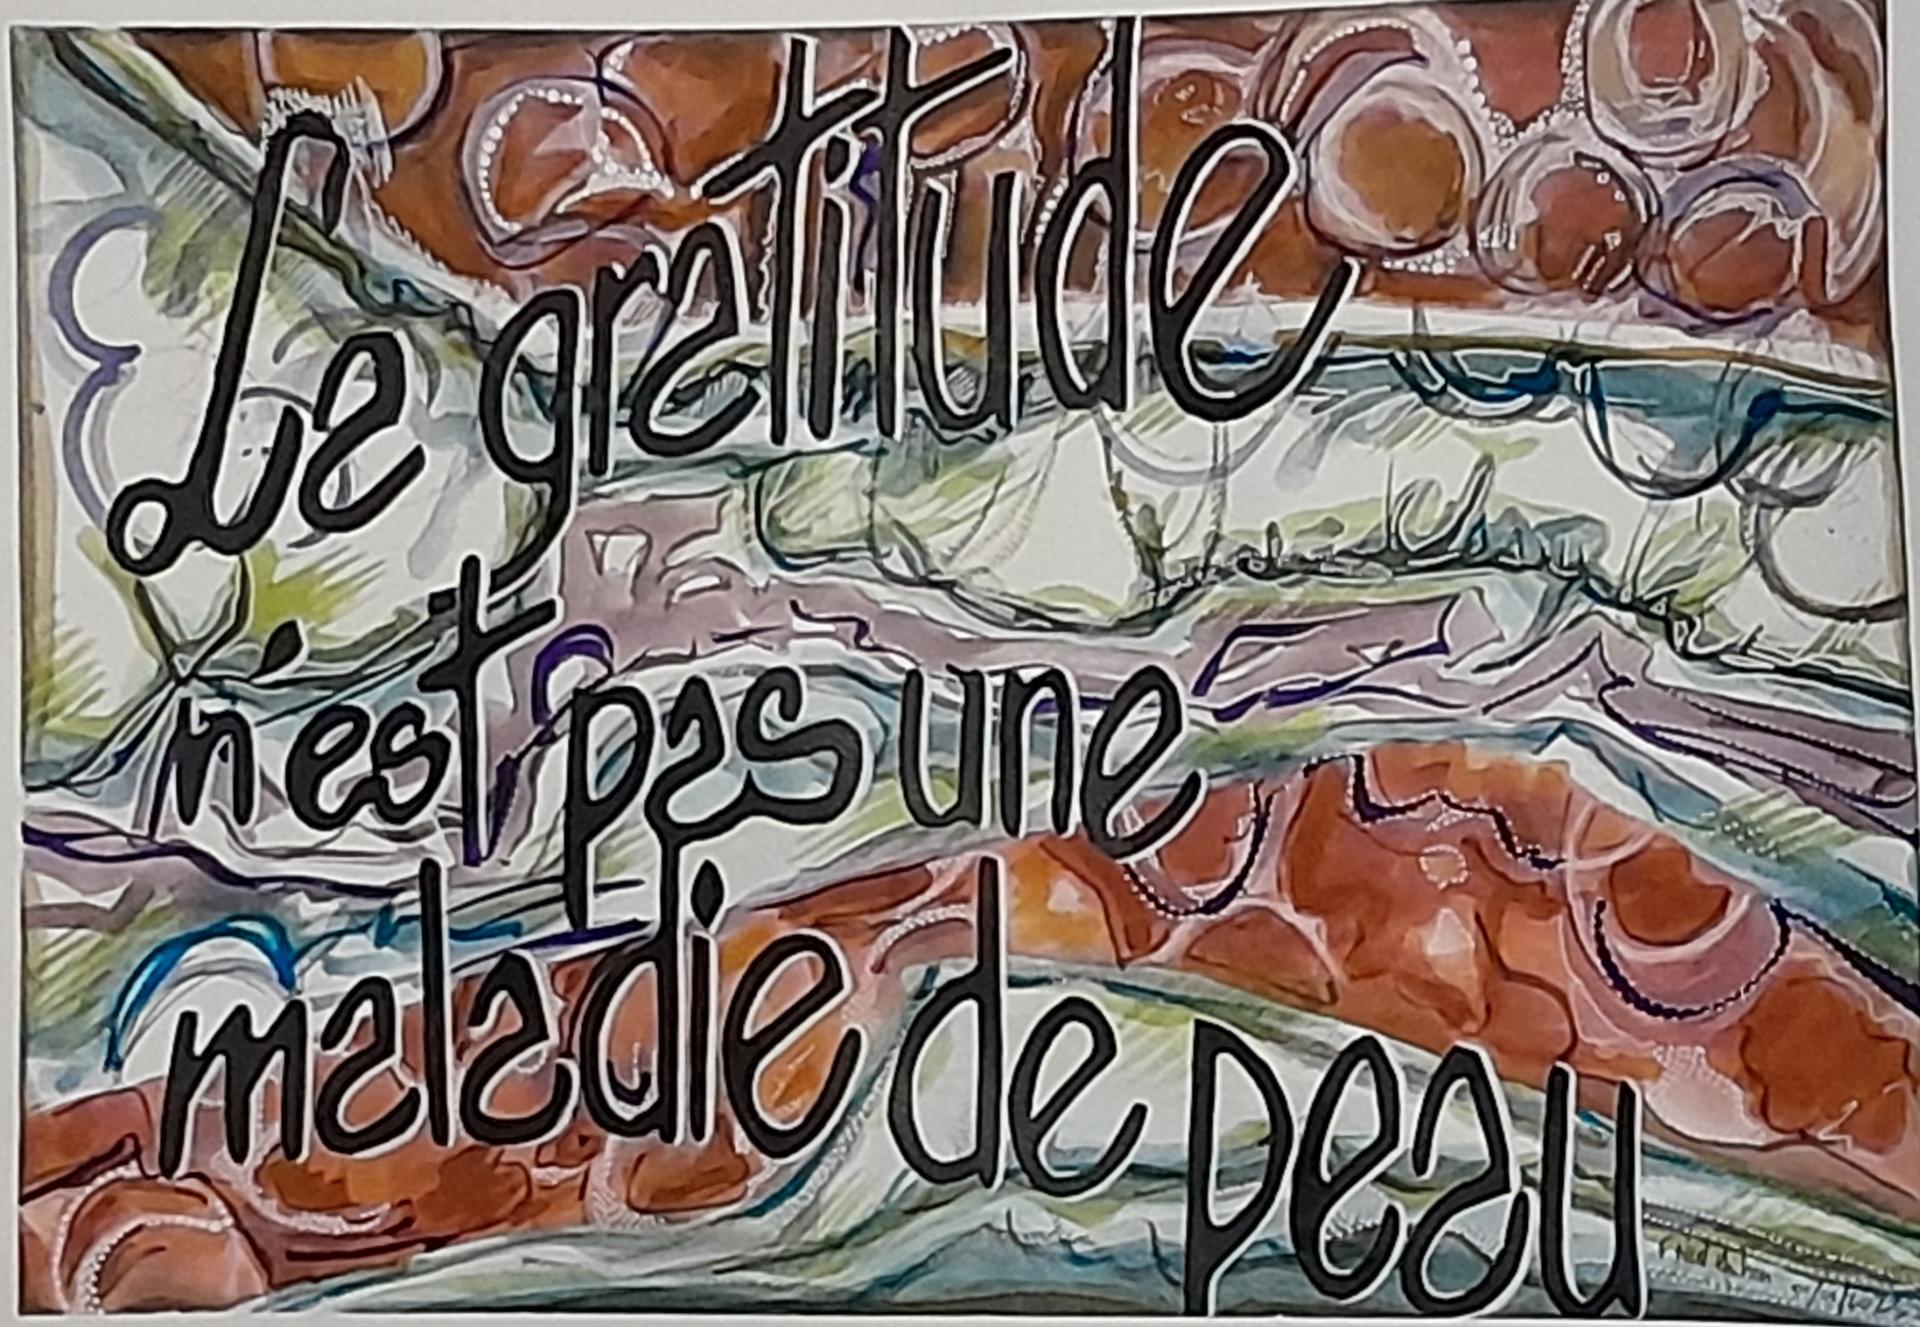 La gratitude
n'est pas une
maladie de peau